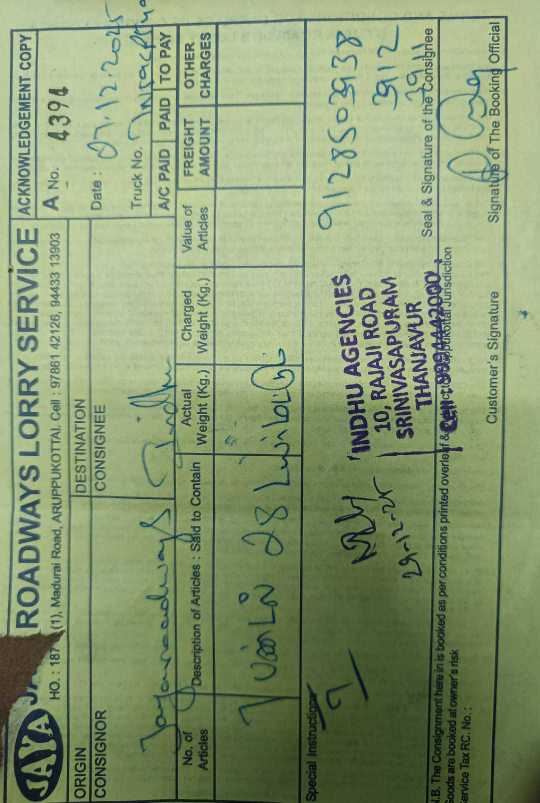 JAYA
ROADWAYS LORRY SERVICE
HO. : 187 (1), Madurai Road, ARUPPUKOTTAI. Cell : 97861 42126, 94433 13903
ACKNOWLEDGEMENT COPY
A No. 4394
Date : 27.12.2025
Truck No.
A/C PAID PAID TO PAY
ORIGIN
DESTINATION
CONSIGNOR
CONSIGNEE
Jayaroadways
Indhu
No. of Articles
Description of Articles : Said to Contain
Actual Weight (Kg.)
Charged Weight (Kg.)
Value of Articles
FREIGHT AMOUNT
OTHER CHARGES
7
28
Special Instructions
7
29-12-25
INDHU AGENCIES
10, RAJAJI ROAD
SRINIVASAPURAM
THANJAVUR
9128503938
3912
3911
Seal & Signature of the Consignee
N.B. The Consignment here in is booked as per conditions printed overleaf &
Jurisdiction
Goods are booked at owner's risk
Service Tax RC. No. :
Customer's Signature
Signature of The Booking Official